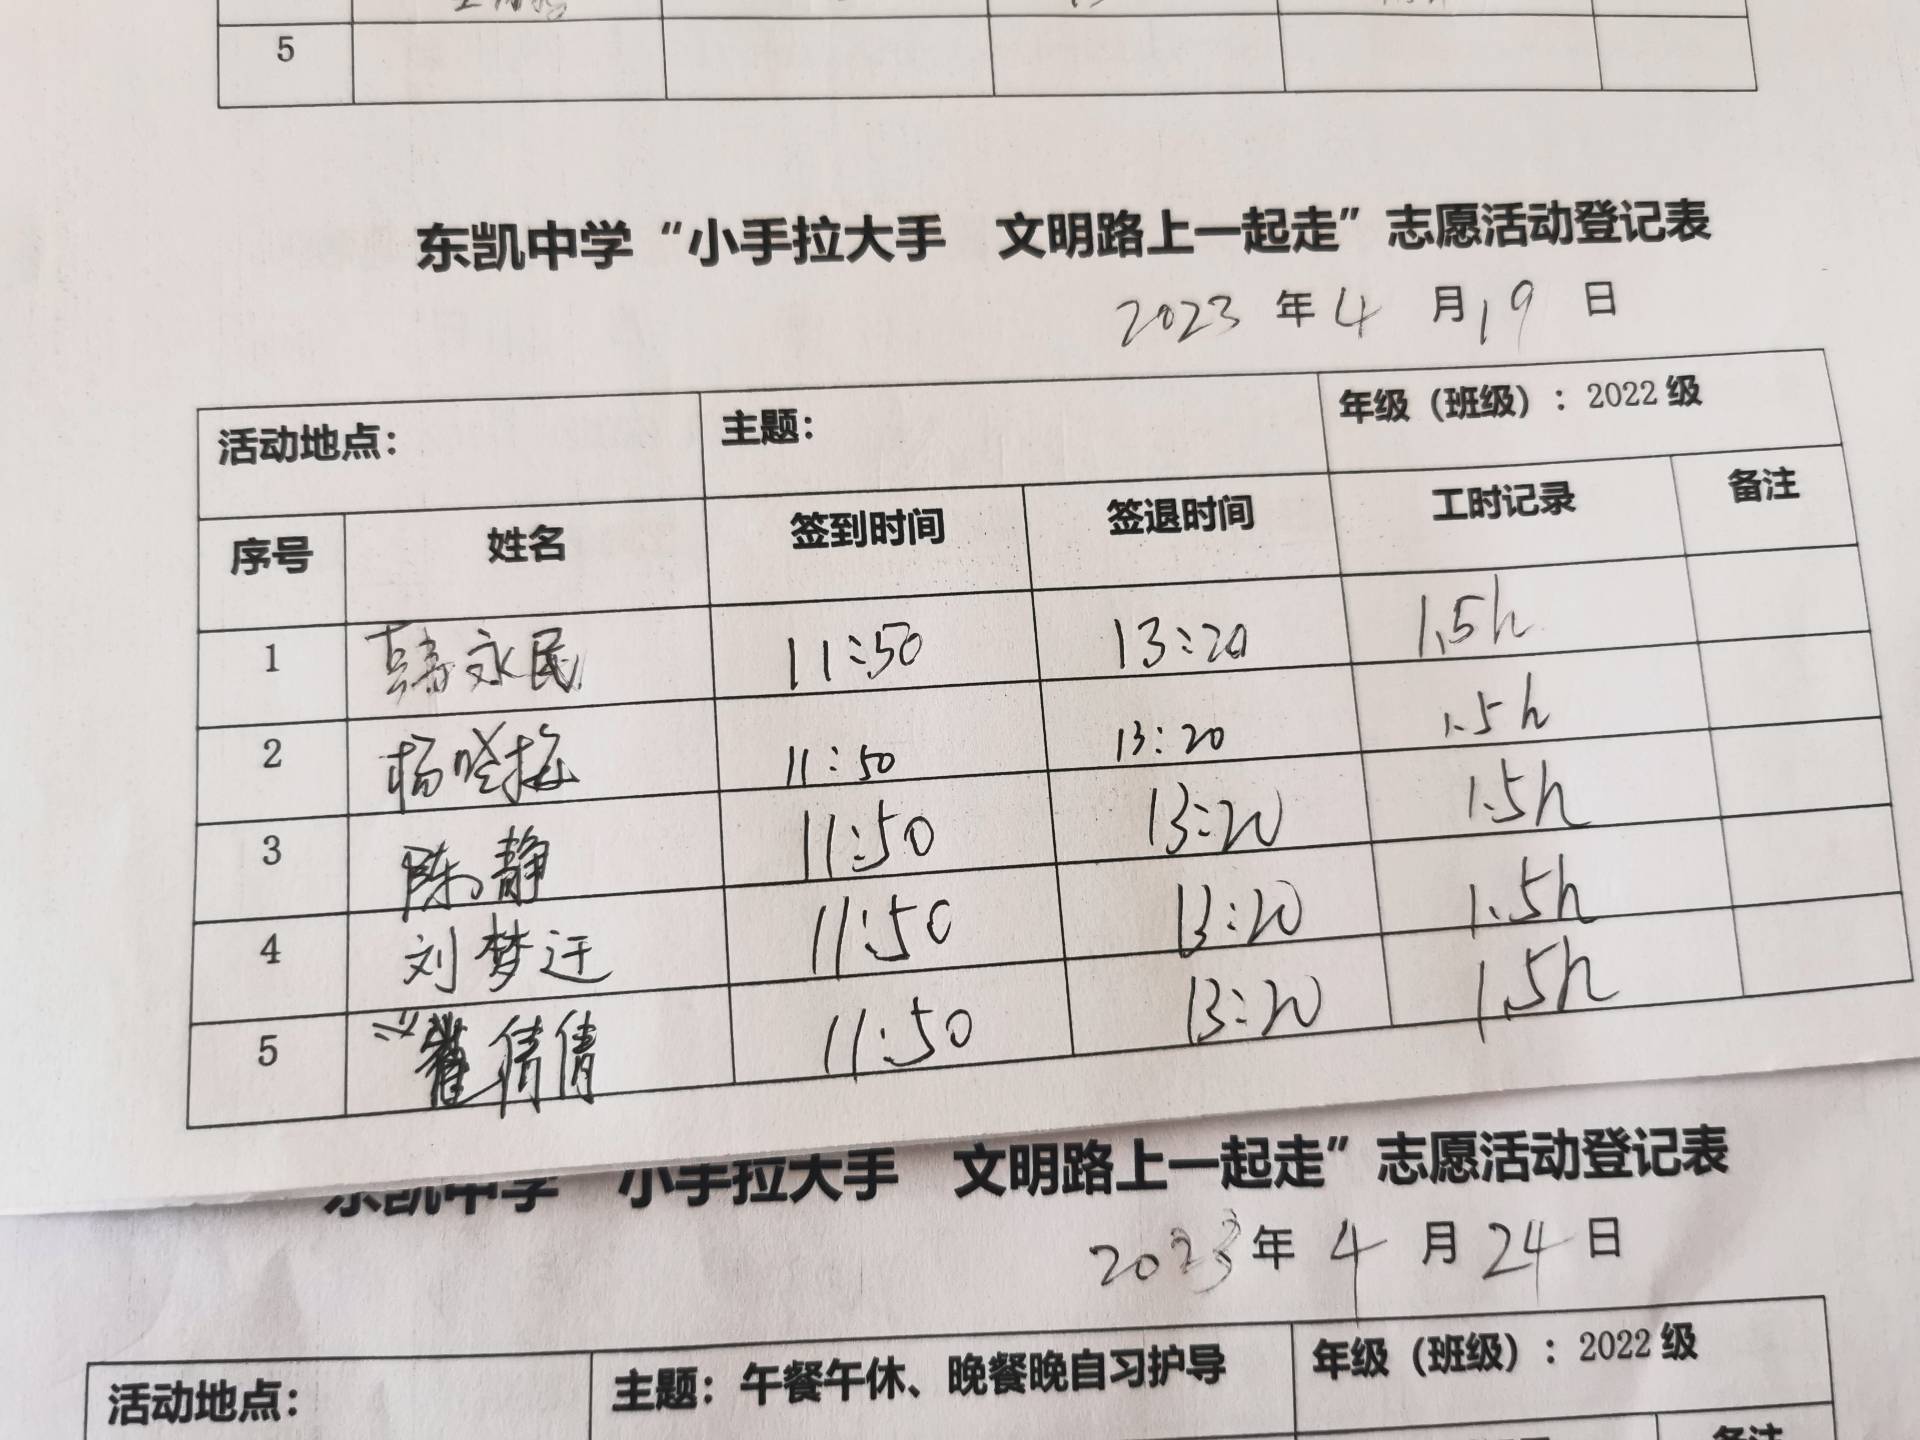 5
东凯中学“小手拉大手 文明路上一起走”志愿活动登记表
2023 年 4 月 19 日
活动地点： 主题： 年级（班级）：2022级
序号 姓名 签到时间 签退时间 工时记录 备注
1 韩永民 11:50 13:20 1.5h
2 杨晓梅 11:50 13:20 1.5h
3 陈静 11:50 13:20 1.5h
4 刘梦迁 11:50 13:20 1.5h
5 倩倩 11:50 13:20 1.5h
东凯中学 小手拉大手 文明路上一起走”志愿活动登记表
2023 年 4 月 24 日
活动地点： 主题：午餐午休、晚餐晚自习护导 年级（班级）：2022级
备注